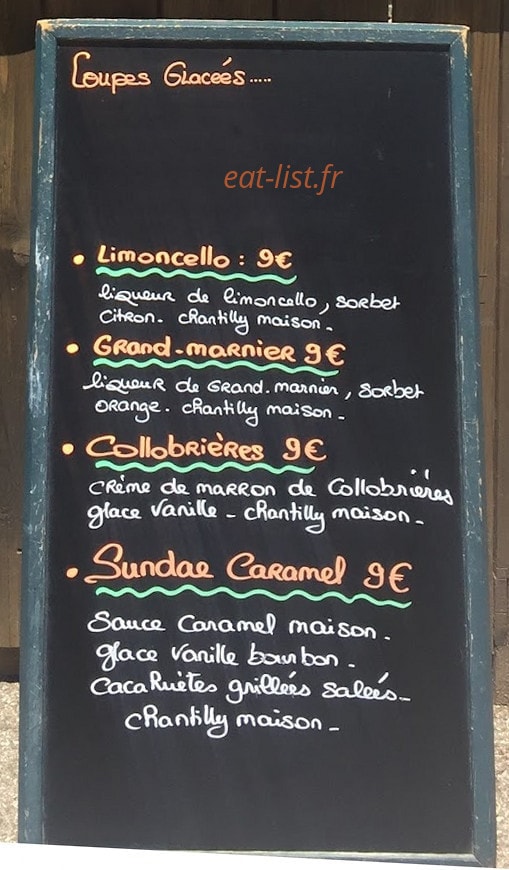 Coupes Glaceés.....
eat-list.fr
• Limoncello : 9€
liqueur de limoncello, sorbet
citron. chantilly maison.
• Grand-marnier 9€
liqueur de Grand.marnier, sorbet
orange. chantilly maison.
• Collobrières 9€
crème de marron de Collobrières
glace vanille - chantilly maison.
• Sundae Caramel 9€
Sauce Caramel maison.
glace vanille bourbon.
cacahuètes grillées saleés.
chantilly maison.